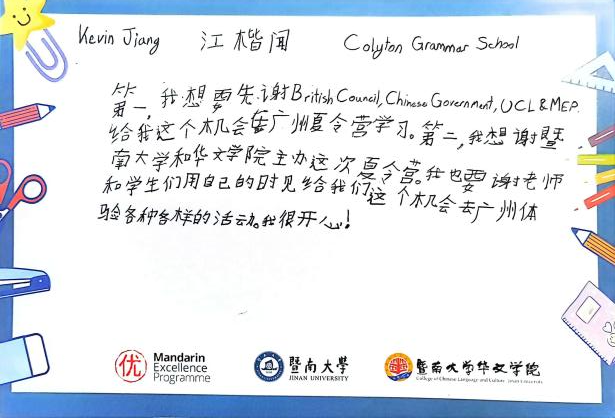 Kevin Jiang 江楷闻 Colyton Grammar School
第一,我想要先谢British Council, Chinese Government, UCL & MEP.
给我这个机会去广州夏令营学习。第二,我想谢暨
南大学和华文学院主办这次夏令营。我也要谢老师
和学生们用自己的时见给我们这个机会去广州体
验各种各样的活动。我很开心!
优 Mandarin Excellence Programme
暨南大學 JINAN UNIVERSITY
暨南大学华文学院
College of Chinese Language and Culture JINAN UNIVERSITY